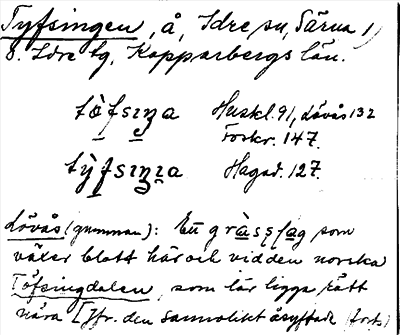 Tyfsingen, å, Idre sn, Särna 1)
o. Idre tg, Kopparbergs län.
tòfsıŋa Huskl. 91, Lövås 132
Forkr. 147.
tỳfsıŋıa Hagad. 127.
Lövås (gumman): Ett gràsşlag som
växer blott här och vid den norska
Töfsingdalen, som lär ligga rätt
nära [Jfr. den sannolikt åsyftade (forts)